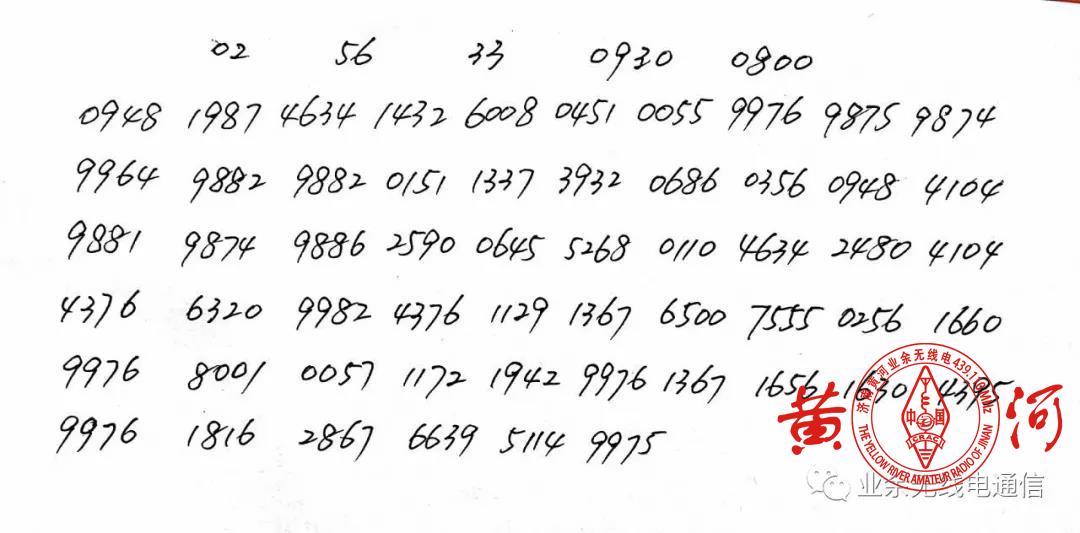 02 56 33 0930 0800
0948 1987 4634 1432 6008 0451 0055 9976 9875 9874
9964 9882 9882 0151 1337 3932 0686 0356 0948 4104
9881 9874 9886 2590 0645 5268 0110 4634 2480 4104
4376 6320 9982 4376 1129 1367 6500 7555 0256 1660
9976 8001 0057 1172 1942 9976 1367 1656 1630 4395
9976 1816 2867 6639 5114 9975
黄 河
济南黄河业余无线电439.110MHz
中国
CRAC
THE YELLOW RIVER AMATEUR RADIO OF JINAN
业余无线电通信